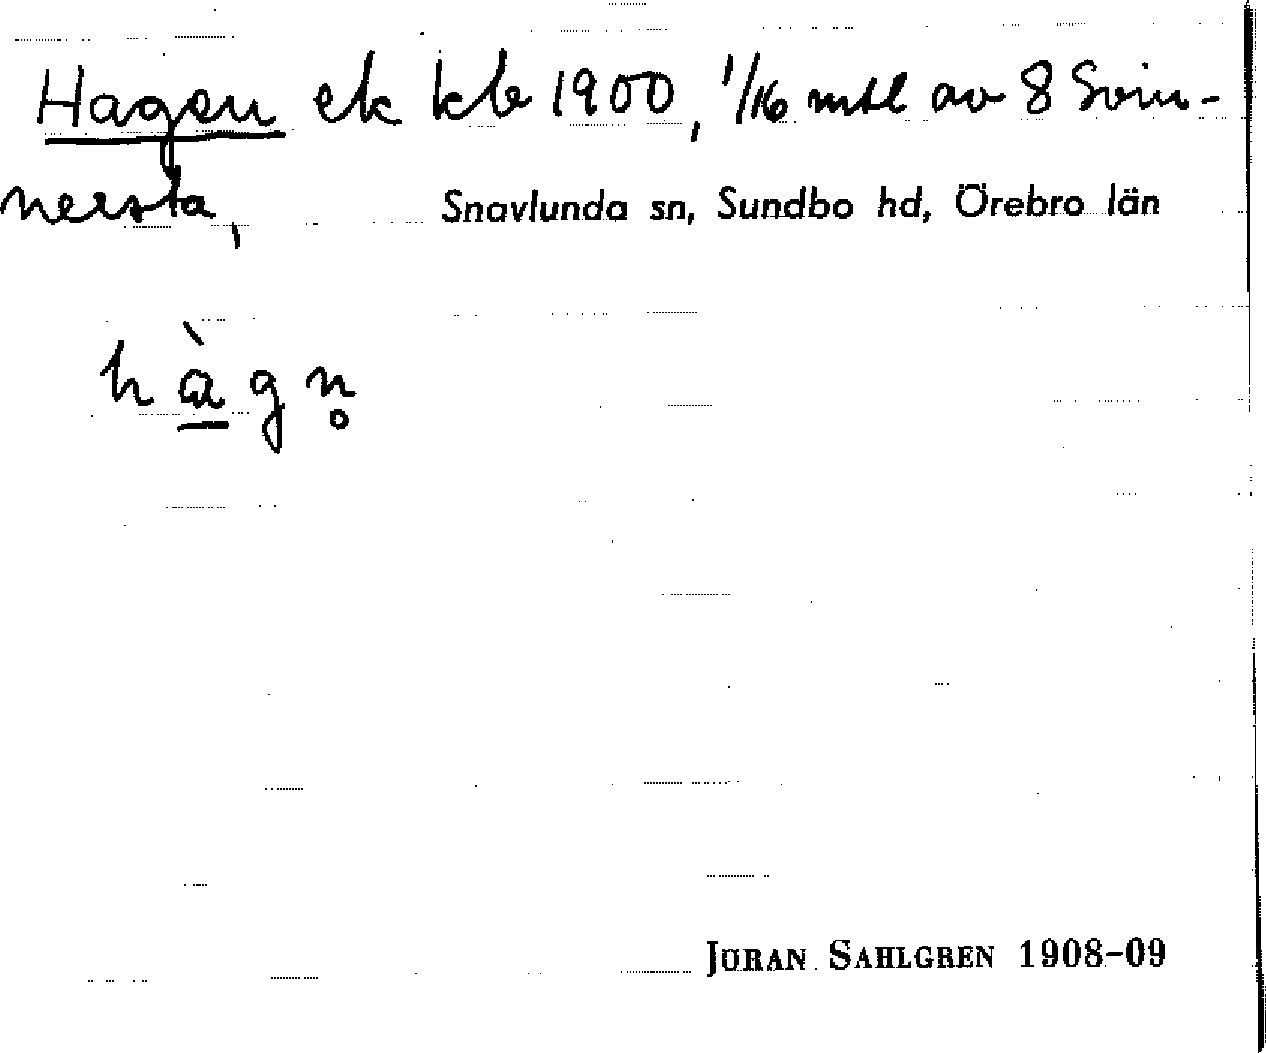 Hagen ek kb 1900, 1/16 mtl av 8 Svin-
nersta, Snavlunda sn, Sundbo hd, Örebro län
hàgn̥
JÖRAN SAHLGREN 1908–09